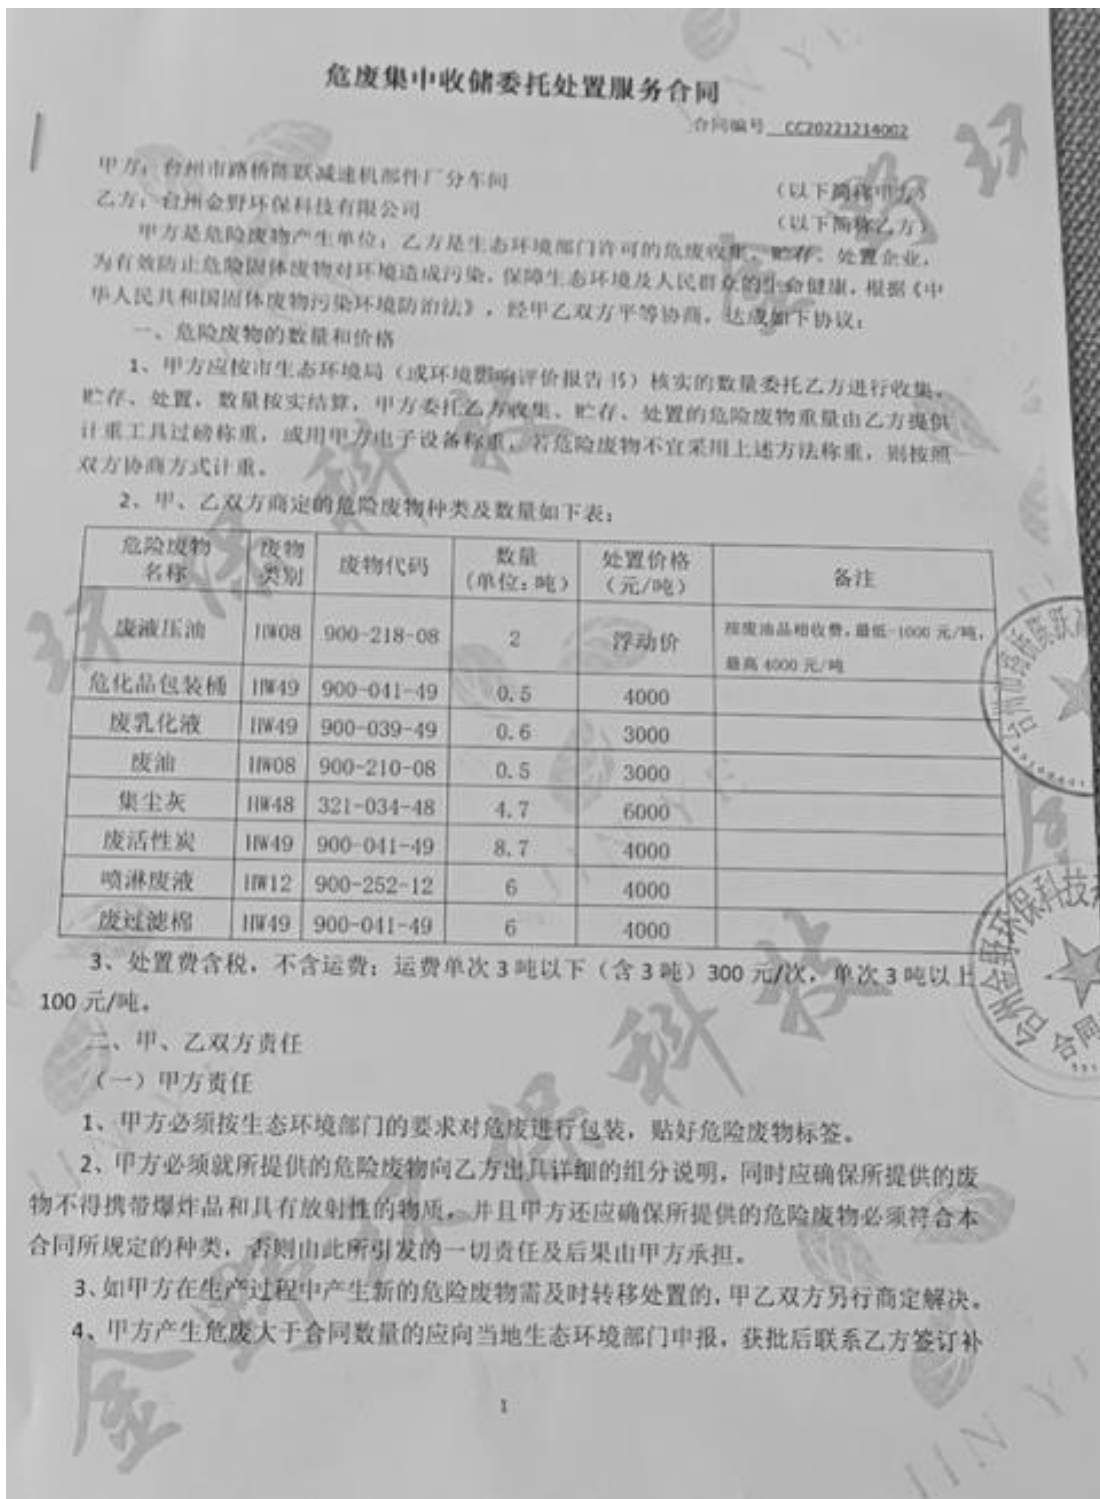 危废集中收储委托处置服务合同
合同编号 CC20221214002
甲方：台州市路桥陈跃减速机部件厂分车间 （以下简称甲方）
乙方：台州金野环保科技有限公司 （以下简称乙方）
甲方是危险废物产生单位，乙方是生态环境部门许可的危废收集、贮存、处置企业，
为有效防止危险固体废物对环境造成污染，保障生态环境及人民群众的生命健康，根据《中
华人民共和国固体废物污染环境防治法》，经甲乙双方平等协商，达成如下协议：
一、危险废物的数量和价格
1、甲方应按市生态环境局（或环境影响评价报告书）核实的数量委托乙方进行收集、
贮存、处置，数量按实结算，甲方委托乙方收集、贮存、处置的危险废物重量由乙方提供
计重工具过磅称重，或用甲方电子设备称重，若危险废物不宜采用上述方法称重，则按照
双方协商方式计重。
2、甲、乙双方商定的危险废物种类及数量如下表：
危险废物名称 废物类别 废物代码 数量（单位：吨） 处置价格（元/吨） 备注
废液压油 HW08 900-218-08 2 浮动价 按废油品相收费，最低-1000 元/吨，最高 4000 元/吨
危化品包装桶 HW49 900-041-49 0.5 4000
废乳化液 HW49 900-039-49 0.6 3000
废油 HW08 900-210-08 0.5 3000
集尘灰 HW48 321-034-48 4.7 6000
废活性炭 HW49 900-041-49 8.7 4000
喷淋废液 HW12 900-252-12 6 4000
废过滤棉 HW49 900-041-49 6 4000
3、处置费含税，不含运费；运费单次 3 吨以下（含 3 吨）300 元/次，单次 3 吨以上
100 元/吨。
二、甲、乙双方责任
（一）甲方责任
1、甲方必须按生态环境部门的要求对危废进行包装，贴好危险废物标签。
2、甲方必须就所提供的危险废物向乙方出具详细的组分说明，同时应确保所提供的废
物不得携带爆炸品和具有放射性的物质，并且甲方还应确保所提供的危险废物必须符合本
合同所规定的种类，否则由此所引发的一切责任及后果由甲方承担。
3、如甲方在生产过程中产生新的危险废物需及时转移处置的，甲乙双方另行商定解决。
4、甲方产生危废大于合同数量的应向当地生态环境部门申报，获批后联系乙方签订补
1
金野环保科技
台州金野环保科技
合同
JIN YE